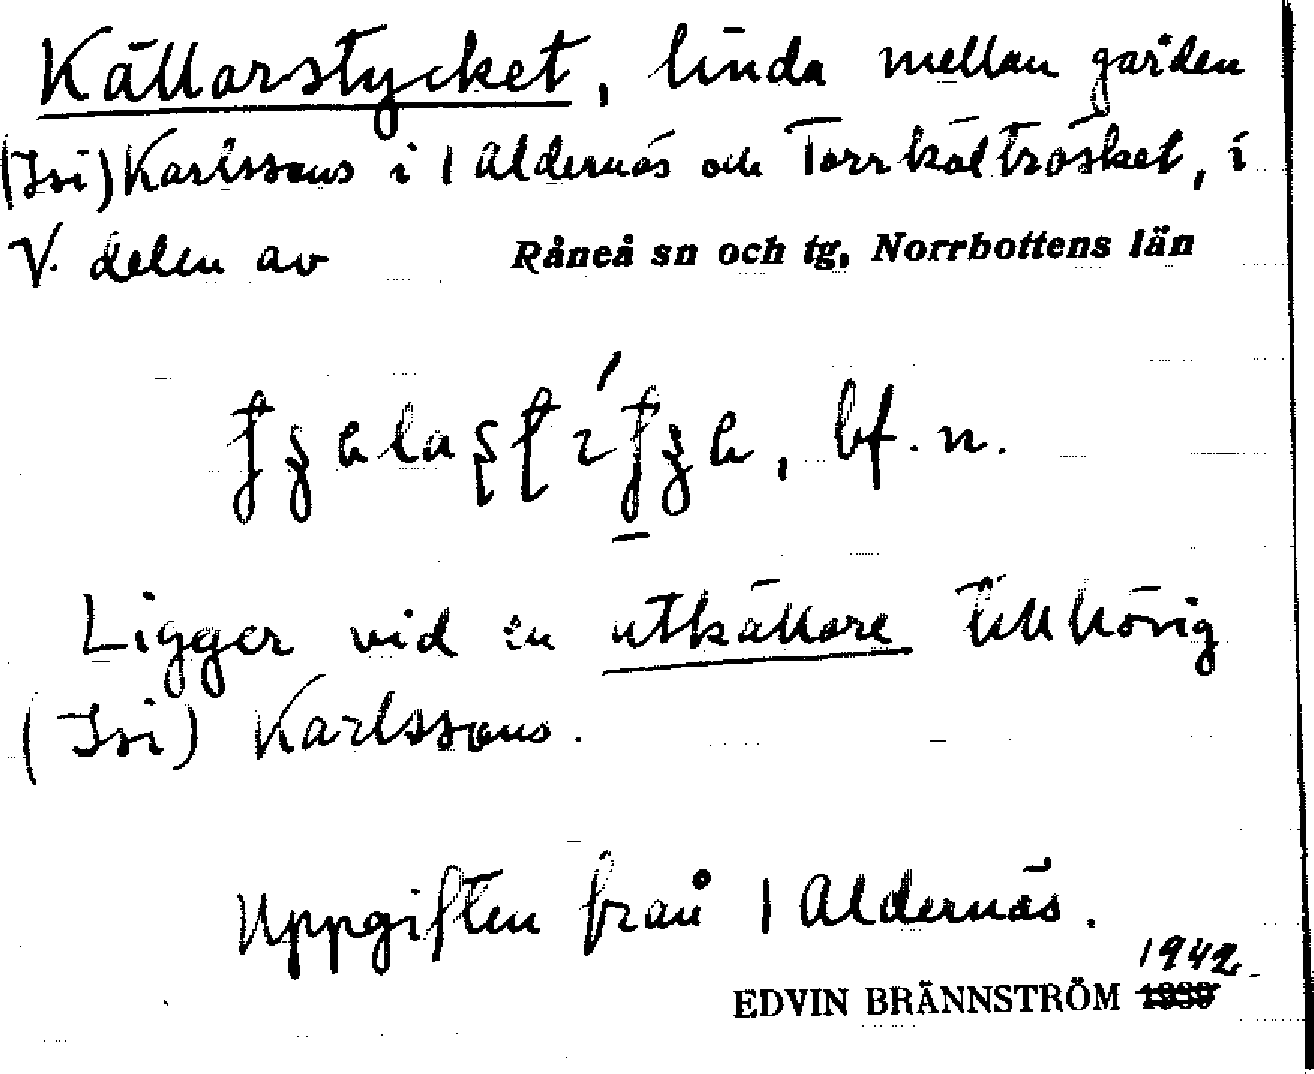 Källarstycket, linda mellan gården
(Isi) Karlssons i 1 Aldernäs och Torrkälträsket, i
V. delen av Råneå sn och tg, Norrbottens län
bf. n.
Ligger vid en utkällare tillhörig
(Isi) Karlssons.
Uppgiften från 1 Aldernäs.
1942
EDVIN BRÄNNSTRÖM 1939